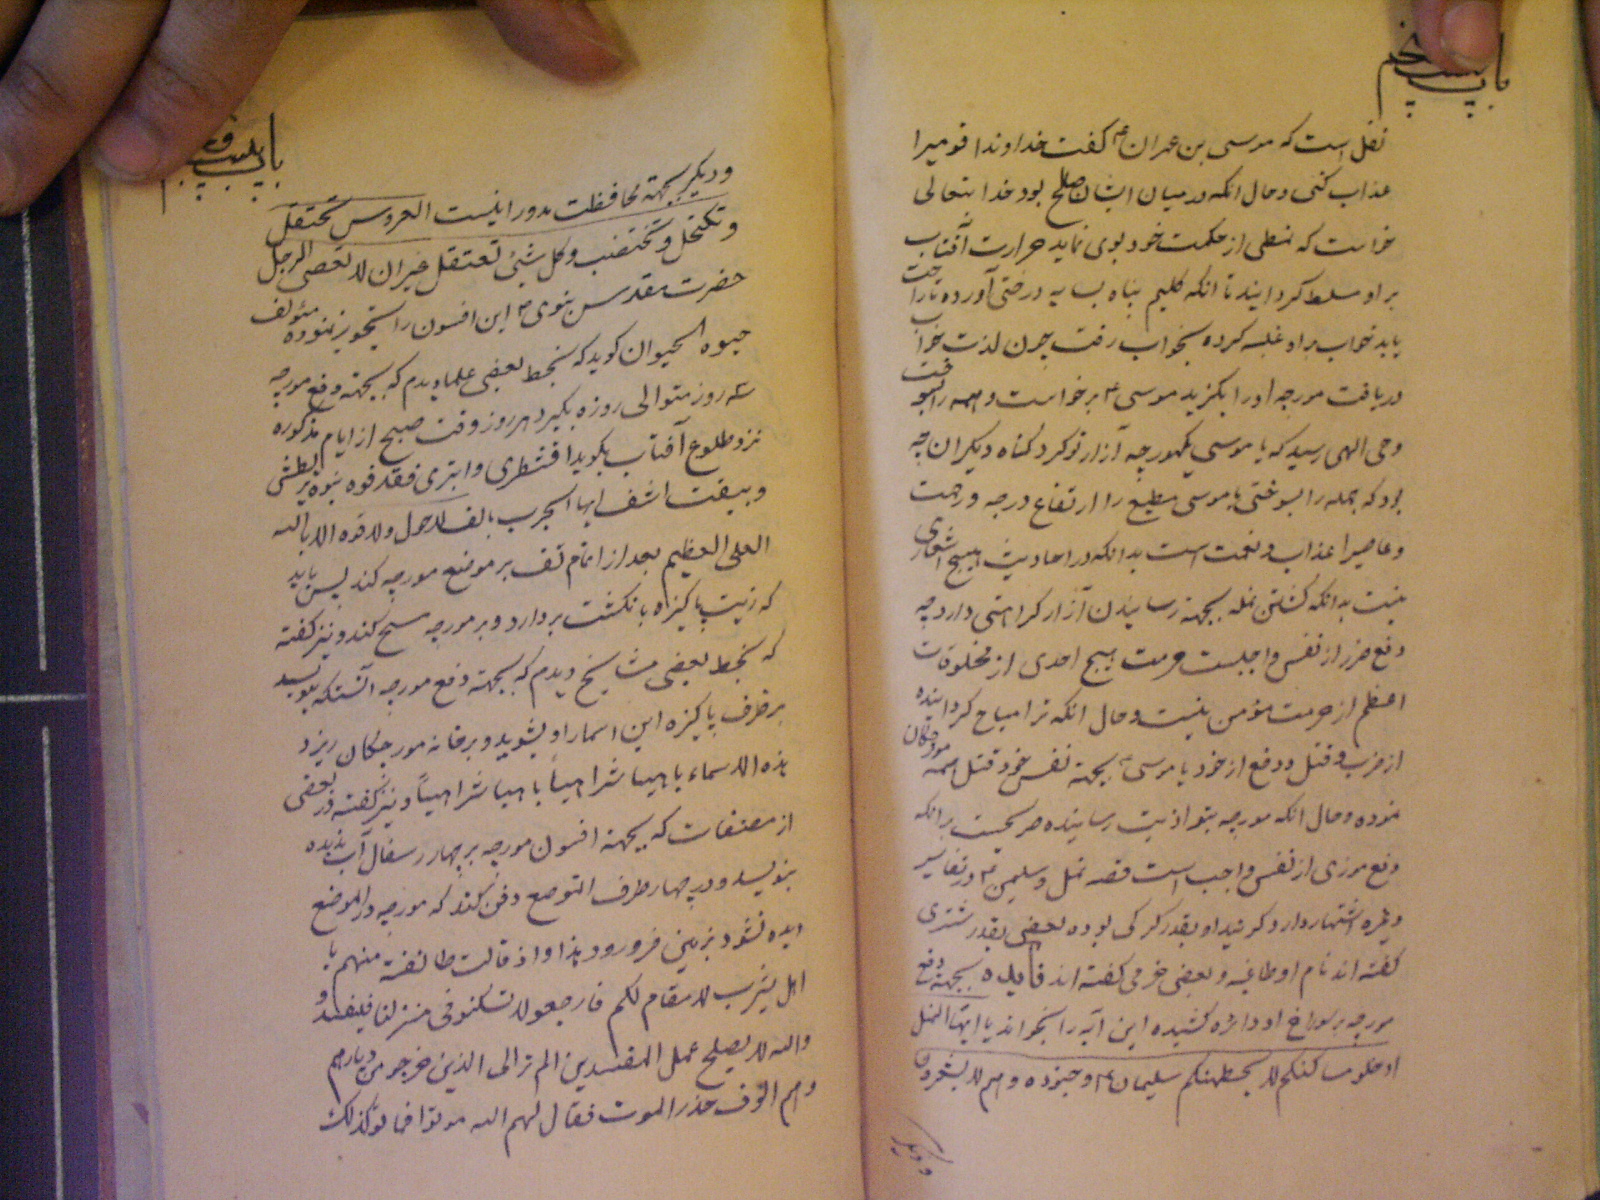 نقل است که موسی بن عمران ع گفت خداوندا قومیرا
عذاب کنی و حال انکه در میان ایشان صلح بود خدا یتعالی
خواست که نمطی از حکمت خود بوی نماید حرارت آفتاب
بر او مسلط کردانید تا انکه کلیم پناه بسایه درختی آورده تا راحت
یابد خواب بر او غلبه کرده بخواب رفت چون لذت خواب
دریافت مورچه او را بگزید موسی ع برخواست و همه را بسوخت
وحی الهی رسید که یا موسی یکمورچه آزار تو کرد گناه دیگران چه
بود که جمله را بسوختی یا موسی مطیع را ارتفاع درجه و رحمت
و عاصیرا عذاب و نقمت است بدانکه در احادیث هیچ اشعاری
نیست بدانکه کشتن نمله بجهة رسانیدن آزار کراهتی دارد چه
دفع ضرر از نفس واجبست حرمت هیچ احدی از مخلوقات
اعظم از حرمت مؤمن نیست و حال انکه ترا مباح کردانیده
از ضرب و قتل و دفع از خود یا موسی ع بجهة نفس خود قتل همه مورچکان
نموده و حال انکه مورچه بتو اذیت رسانیده صریحست برانکه
دفع موذی از نفس واجب است قصه نمل و سلیمن ع در تفاسیر
و غیره اشتهار دارد کویند او بقدر کرکی بوده بعضی بقدر شتری
کفته اند نام او طاغیه و بعضی خرمی کفته اند فایده بجهة دفع
مورچه بر سوراخ او دائره کشیده این آیه را بخواند یا ایها النمل
ادخلو مساکنکم لا یحطمنکم سلیمان ع و جنوده و هم لا یشعرون
و دیگر
و دیکر بجهة محافظت مدور اینست العروس تحتفل
و تکتحل و تختضب و کل شئ تفتعل غیر ان لا تعصی الرجل
حضرت مقدس نبوی ص این افسون را تجویز نموده مئولف
حیوه الحیوان کوید که بخط بعضی علما دیدم که بجهة دفع مورچه
سه روز متوالی روزه بگیرد هر روز وقت صبح از ایام مذکوره
نزد طلوع آفتاب بگوید اقشطری و ابتری فقد فوه بنوه بربطشی
و بیقت اشف ایها الجرب بالف لا حول ولا قوه الا بالله
العلی العظیم بعد از اتمام تف بر موضع مورچه کند پس باید
که زیت پاکیزه بانکشت بردارد و بر مورچه مسح کند و نیز کفته
که بخط بعضی مشایخ دیدم که بجهة دفع مورچه انستکه بنویسد
بر ظرف پاکیزه این اسما را و بشوید و برخانه مورچکان ریزد
هذه الاسماء یا هیا شراهیاً یا هیا شراهیاً و نیز کفته در بعضی
از مصنفات که بجهة افسون مورچه بر چهار سفال آب ندیده
بنویسد و در چهار طرف التوضع دفن کند که مورچه در الموضع
دیده نشود بزمین فرو رود هذا و اذ قالت طائفة منهم یا
اهل یثرب لا مقام لکم فارجعو لا تسکنو فی منزلنا فیفسد و
والله لا یصلح عمل المفسدین الم تر الی الذین خرجو من دیارهم
و هم الوف حذر الموت فقال لهم الله موتوا فماتو کذلک